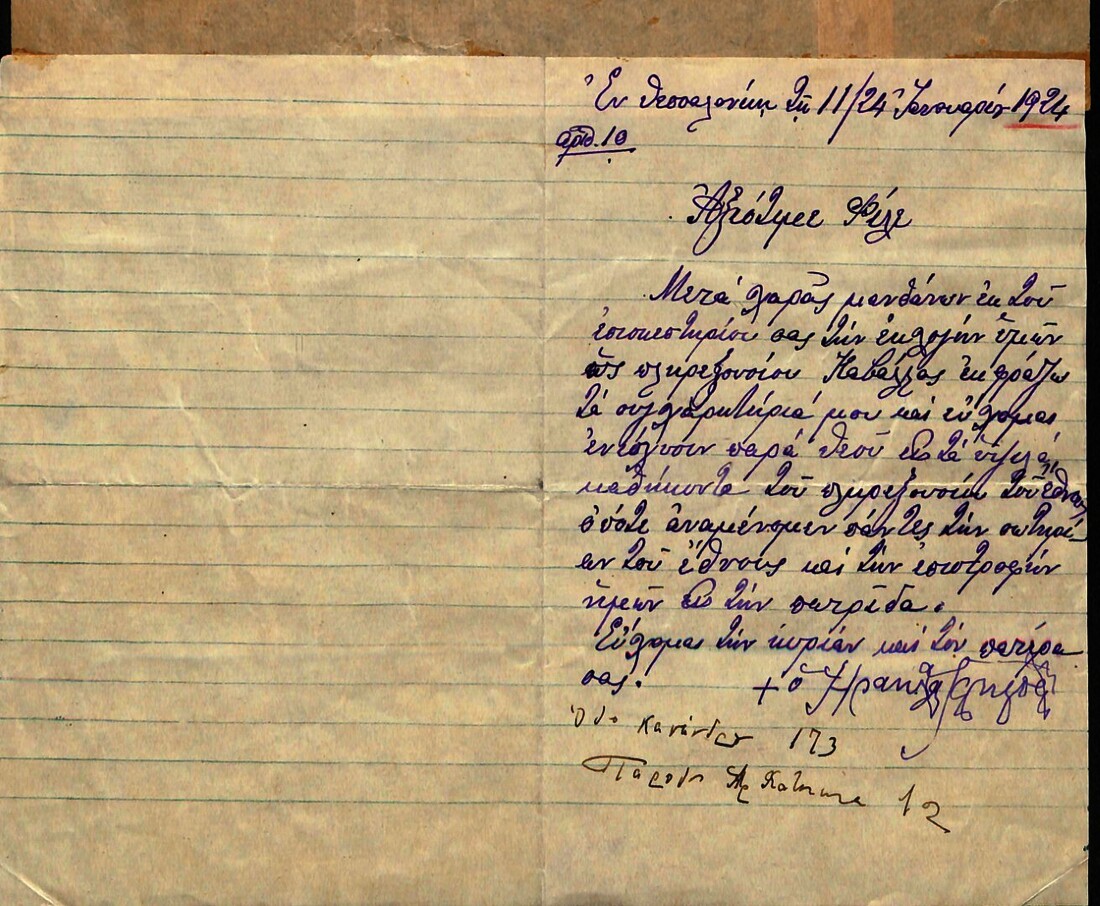 Ἐν Θεσσαλονίκῃ τῇ 11/24 Ἰανουαρίου 1924
ἀριθ. 10
Ἀξιότιμε Φίλε
Μετὰ χαρᾶς μανθάνων ἐκ τοῦ
ἐπισκεπτηρίου σας τὴν ἐκλογὴν ὑμῶν
ὡς πληρεξουσίου Καβάλλας ἐκφράζω
τὰ συγχαρητήριά μου καὶ εὔχομαι
ἐνίσχυσιν παρὰ Θεοῦ εἰς τὰ ὑψηλὰ
καθήκοντα τοῦ πληρεξουσίου τοῦ ἔθνους
ὁπότε ἀναμένομεν πάντες τὴν σωτηρί-
αν τοῦ ἔθνους καὶ τὴν ἐπιστροφὴν
ἡμῶν εἰς τὴν πατρίδα.
Εὔχομαι τὴν κυρίαν καὶ τὸν πατέρα
σας.
+ ὁ
173
Πάροδος 12